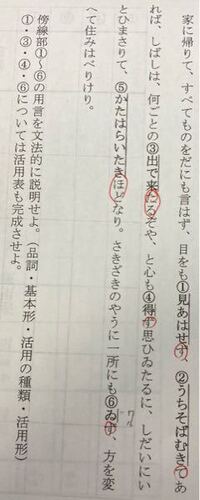 家に帰りて、すべてものをだにも言はず、目をも①見あはせず、②うちそばむきてあ
れば、しばしは、何ごとの③出で来たるぞや、と心も④得ず思ひゐたるに、しだいにい
とひまさりて、⑤かたはらいたきほどなり。さきざきのやうに一所にも⑥ゐず、方を変
へて住みはべりけり。
傍線部①～⑥の用言を文法的に説明せよ。（品詞・基本形・活用の種類・活用形）
①・③・④・⑥については活用表も完成させよ。